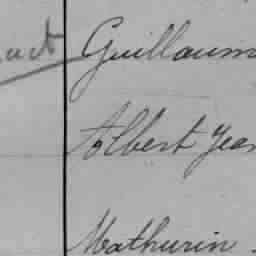 Guillaum
Albert Jean
Mathurin